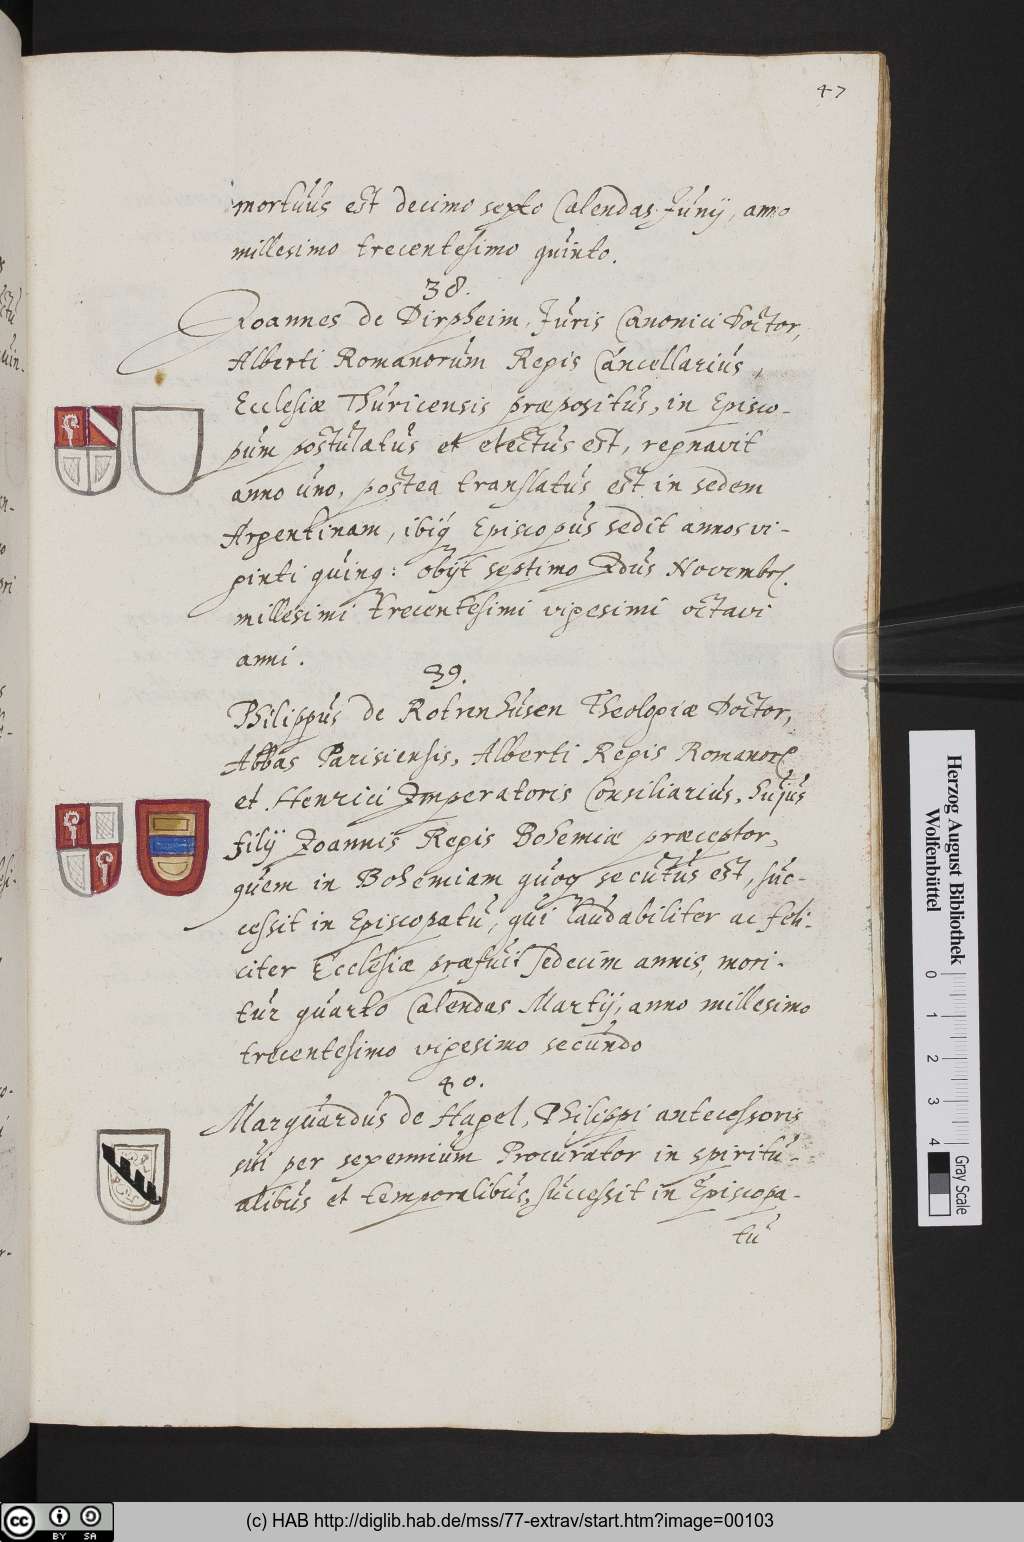 47
mortuus est decimo sexto Calendas Junij, anno
millesimo trecentesimo quinto.
38.
Joannes de Dirpheim, Juris Canonici Doctor,
Alberti Romanorum Regis Cancellarius,
Ecclesiæ Thuricensis præpositus, in Episco-
pum postulatus et electus est, regnavit
anno uno, postea translatus est in sedem
Argentinam, ibiq Episcopus sedit annos vi-
ginti quinq: obijt septimo Idus Novembr.
millesimi trecentesimi vigesimi octavi
anni.
39.
Philippus de Rotrenhusen Theologiæ Doctor,
Abbas Parisiensis, Alberti Regis Romanor,
et Henrici Imperatoris Consiliarius, hujus
filij Joannis Regis Bohemiæ præceptor,
quem in Bohemiam quoq secutus est, suc-
cessit in Episcopatu, qui laudabiliter ac feli-
citer Ecclesiæ præfuit sedecim annis, mori-
tur quarto Calendas Martij, anno millesimo
trecentesimo vigesimo secundo
40.
Marquardus de Hagel, Philippi antecessoris
sui per sexennium Procurator in spiritu-
alibus et temporalibus, successit in Episcopa-
tu
Herzog August Bibliothek
Wolfenbüttel
0 1 2 3 4
Gray Scale
cc BY SA
(c) HAB http://diglib.hab.de/mss/77-extrav/start.htm?image=00103